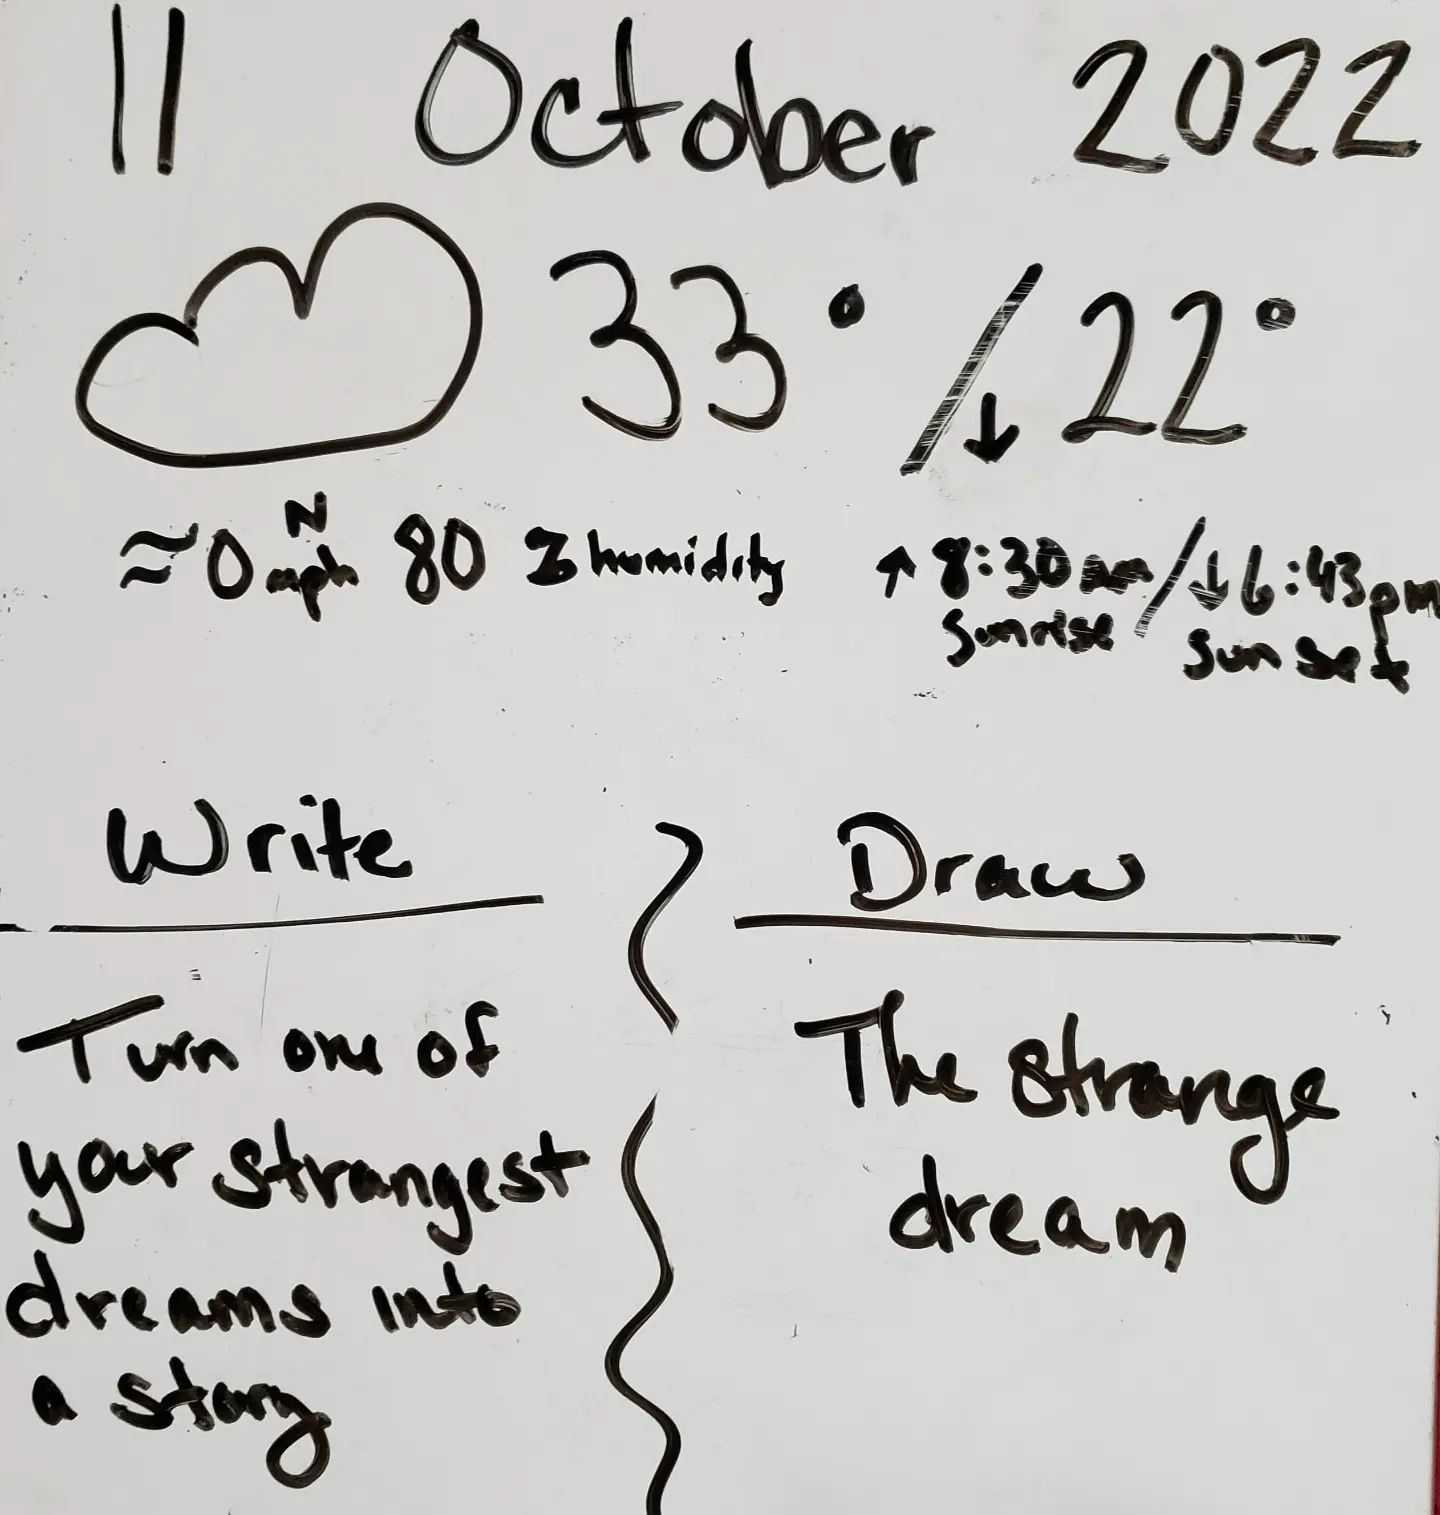 11 October 2022
33° / ↓ 22°
≈ 0 mph N 80 % humidity ↑ 8:30 am / ↓ 6:43 pm
sunrise sunset
Write
Draw
Turn one of
your strangest
dreams into
a story
The strange
dream